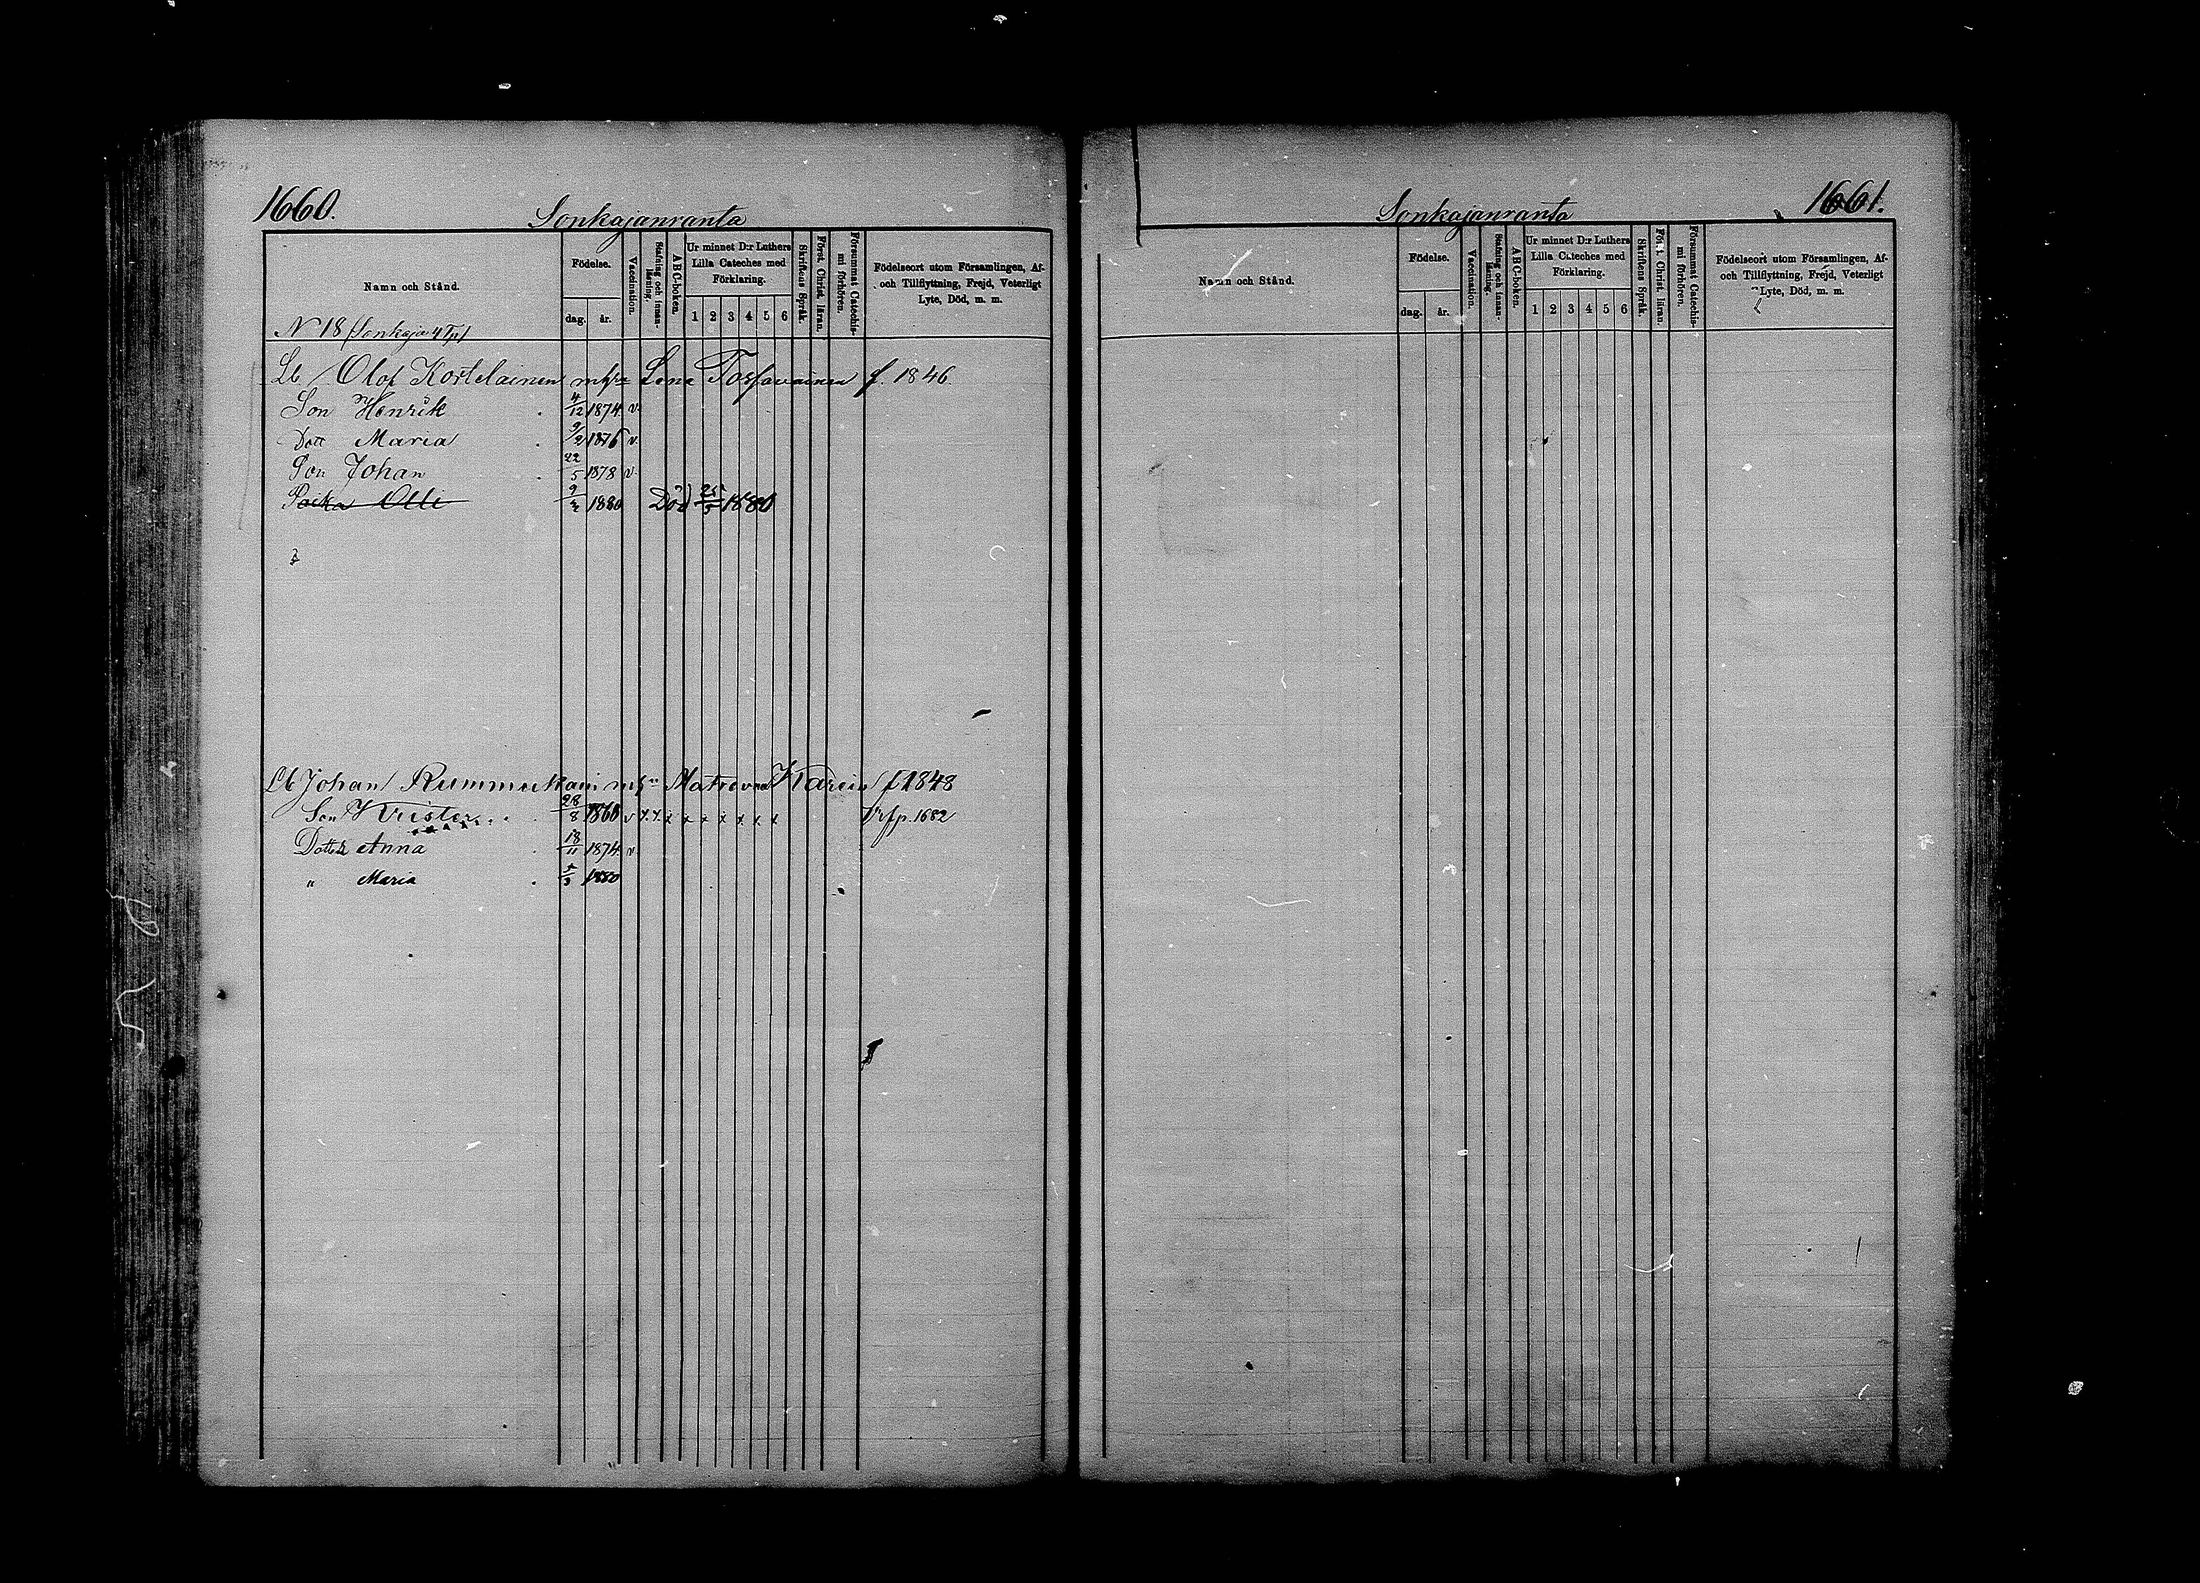 1660.
Sonkajanranta
Namn och Stånd.
Födelse.
dag.
år.
Vaccination.
Stafning och innan-
läsning.
ABC-boken.
Ur minnet D:r Luthers
Lilla Cateches med
Förklaring.
1 2 3 4 5 6
Skriftens Språk.
Förest. Christ. läran.
Försummat Catechis-
mi förhören.
Födelseort utom Församlingen, Af-
och Tillflyttning, Frejd, Veterligt
Lyte, Död, m. m.
N 18 (Sonkaja 4
Lb Olof Kortelainen Lena f. 1846
Son Henrik 4/12 1874 v.
Dott Maria 9/2 1876 v.
Son Johan 22/5 1878 v.
Poika Olli 1880 Död 25/5 1880
Lb Johan Rummukain Matrovna Karin f 1848
Son Krister 28/8 1860 v x x x x x x x x x p. 1682
Dotter Anna 18/11 1874 v.
" Maria 1880
Sonkajanranta
1661.
Namn och Stånd.
Födelse.
dag.
år.
Vaccination.
Stafning och innan-
läsning.
ABC-boken.
Ur minnet D:r Luthers
Lilla Cateches med
Förklaring.
1 2 3 4 5 6
Skriftens Språk.
Först. Christ. läran.
Försummat Catechis-
mi förhören.
Födelseort utom Församlingen, Af-
och Tillflyttning, Frejd, Veterligt
Lyte, Död, m. m.